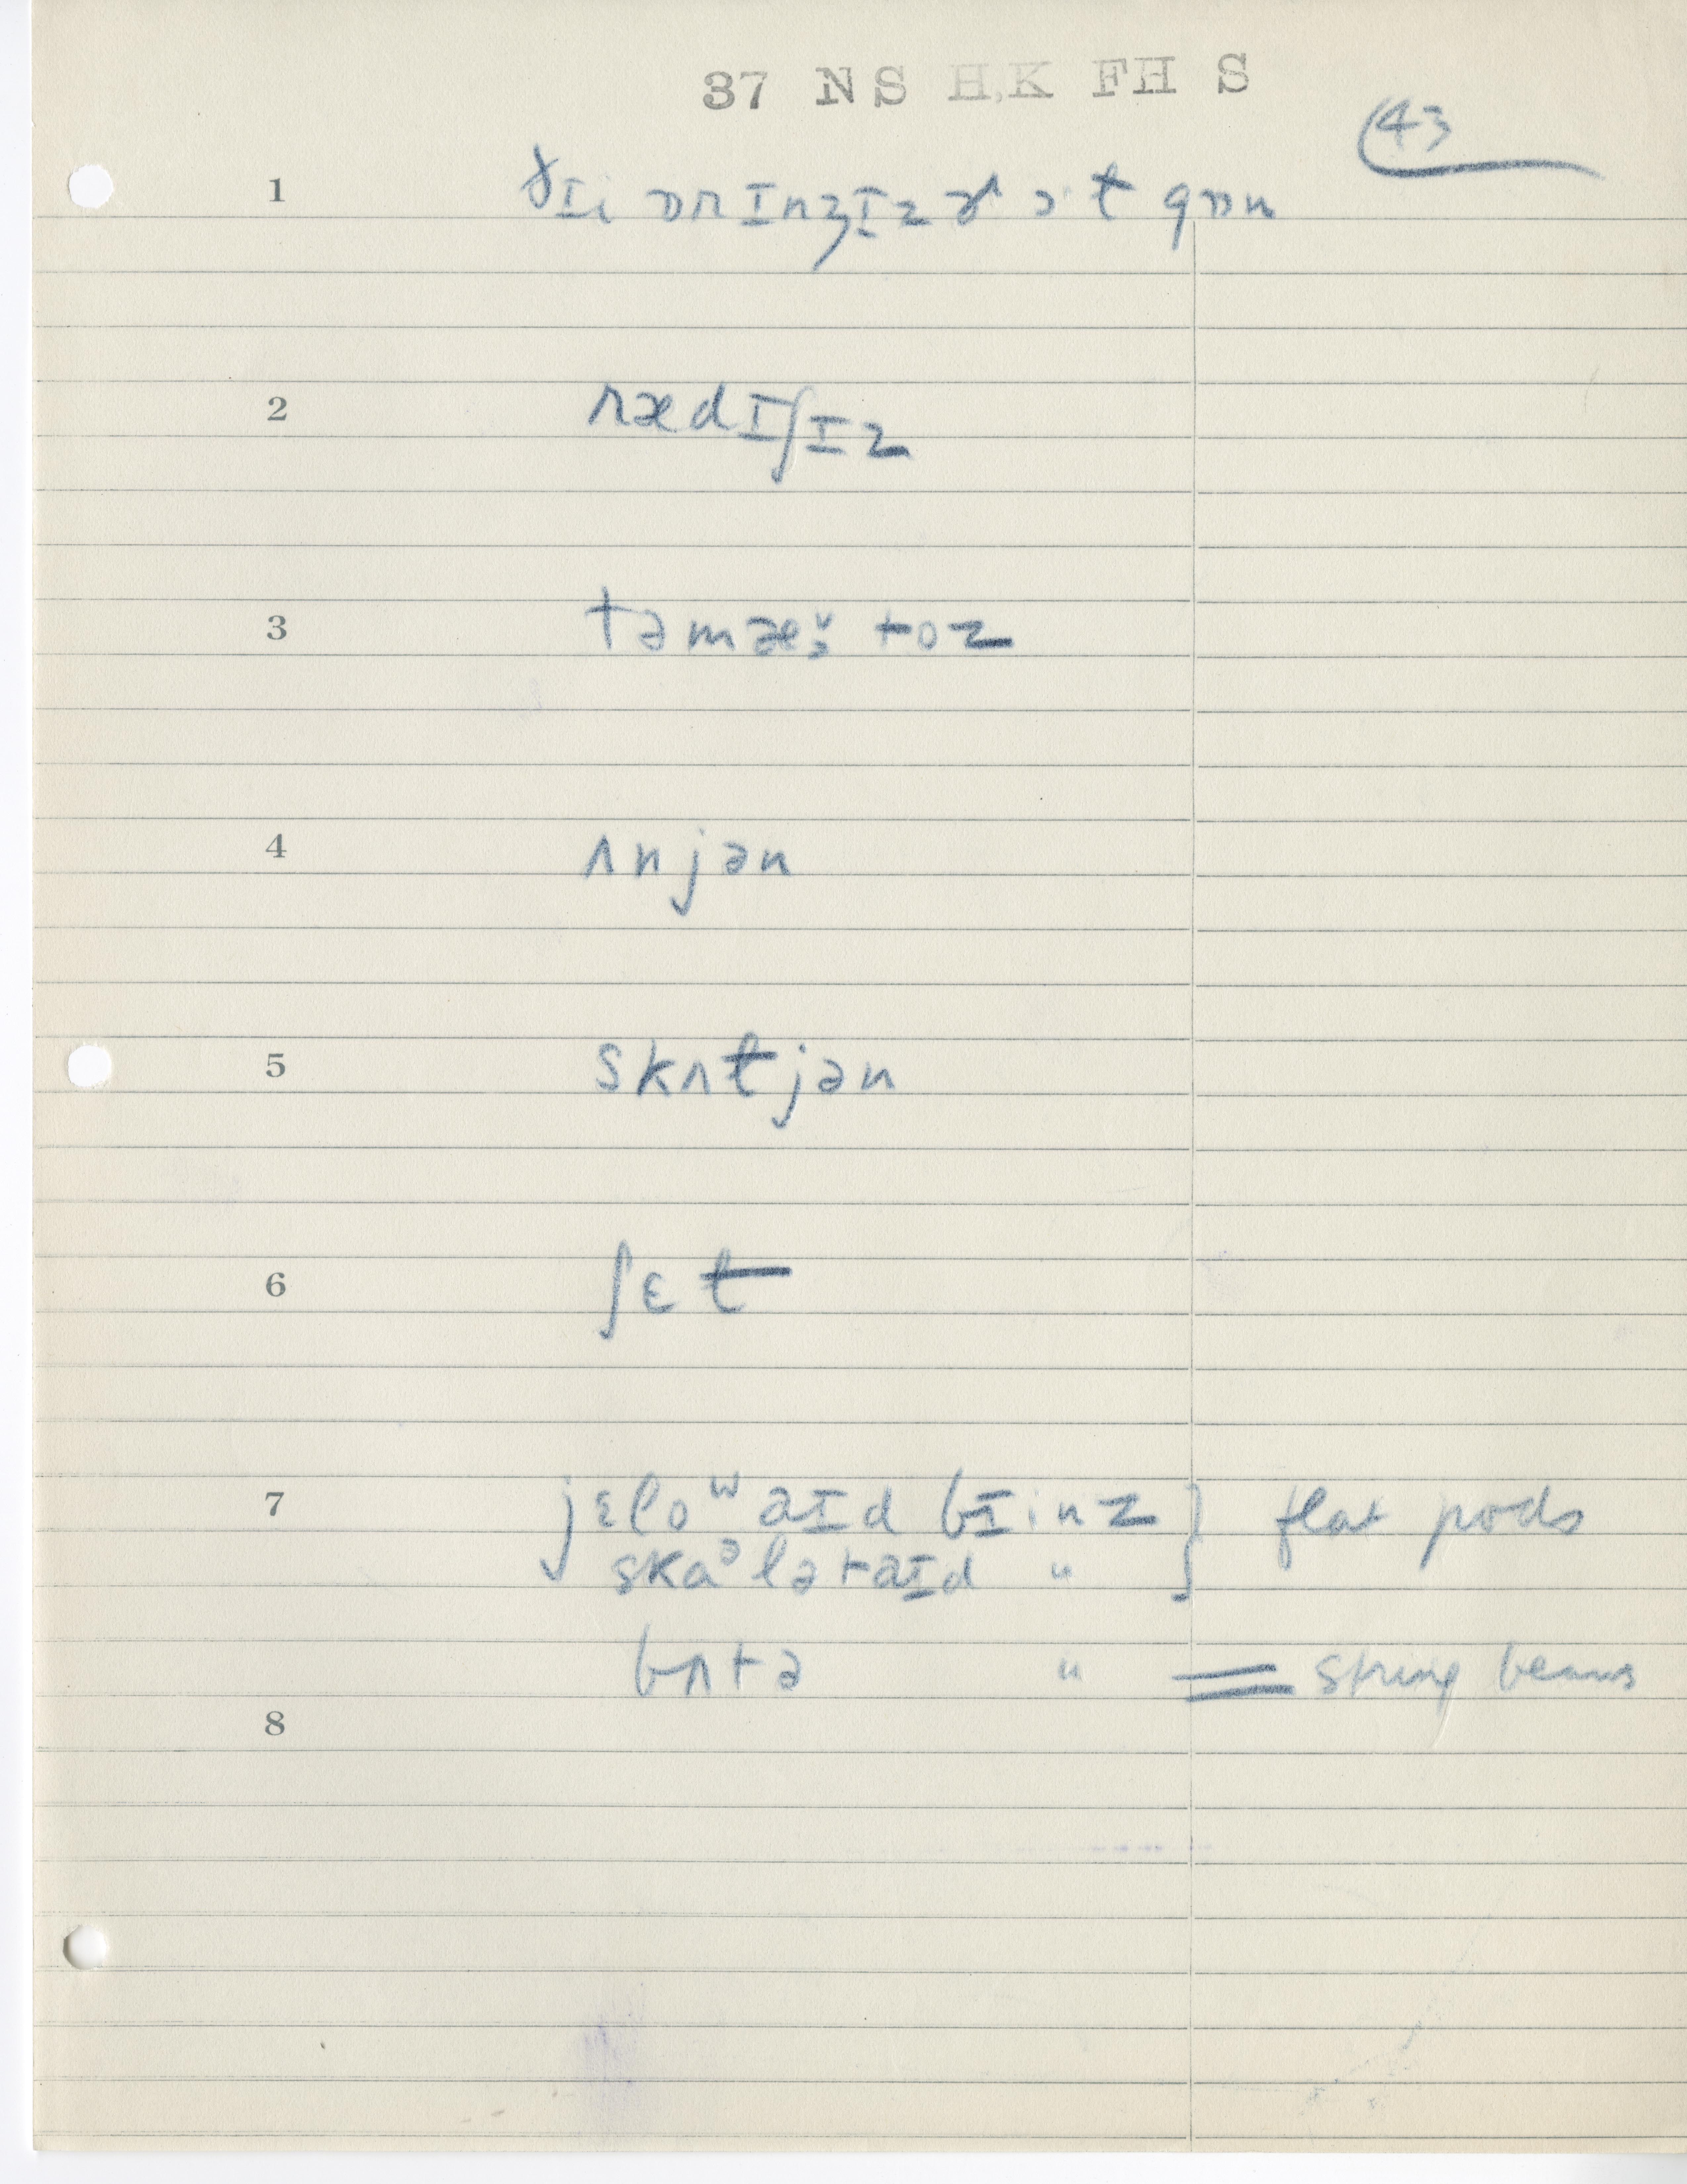 37 NS H.K FH S
43
1 ðɪi ɒrɪnʒɪz ɚ ɔt gɒn
2 rædɪʃɪz
3 təmæətoz
4 ʌnjən
5 skʌtjən
6 ʃɛt
7 jɛloʷ aɪd bɪinz } flat pods
skaᵊlətaɪd "
bʌtə " = string beans
8